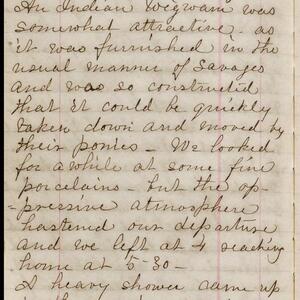 An Indian Wegwam was
somewhat attractive - as
it was furnished in the
usual manner of Savages
and was so constructed
that it could be quickly
taken down and moved by
their ponies - We looked
for a while at some fine
porcelains - but the op-
-pressive atmosphere
hastened our departure
and we left at 4 reaching
home at 5-30 -
A heavy shower came up